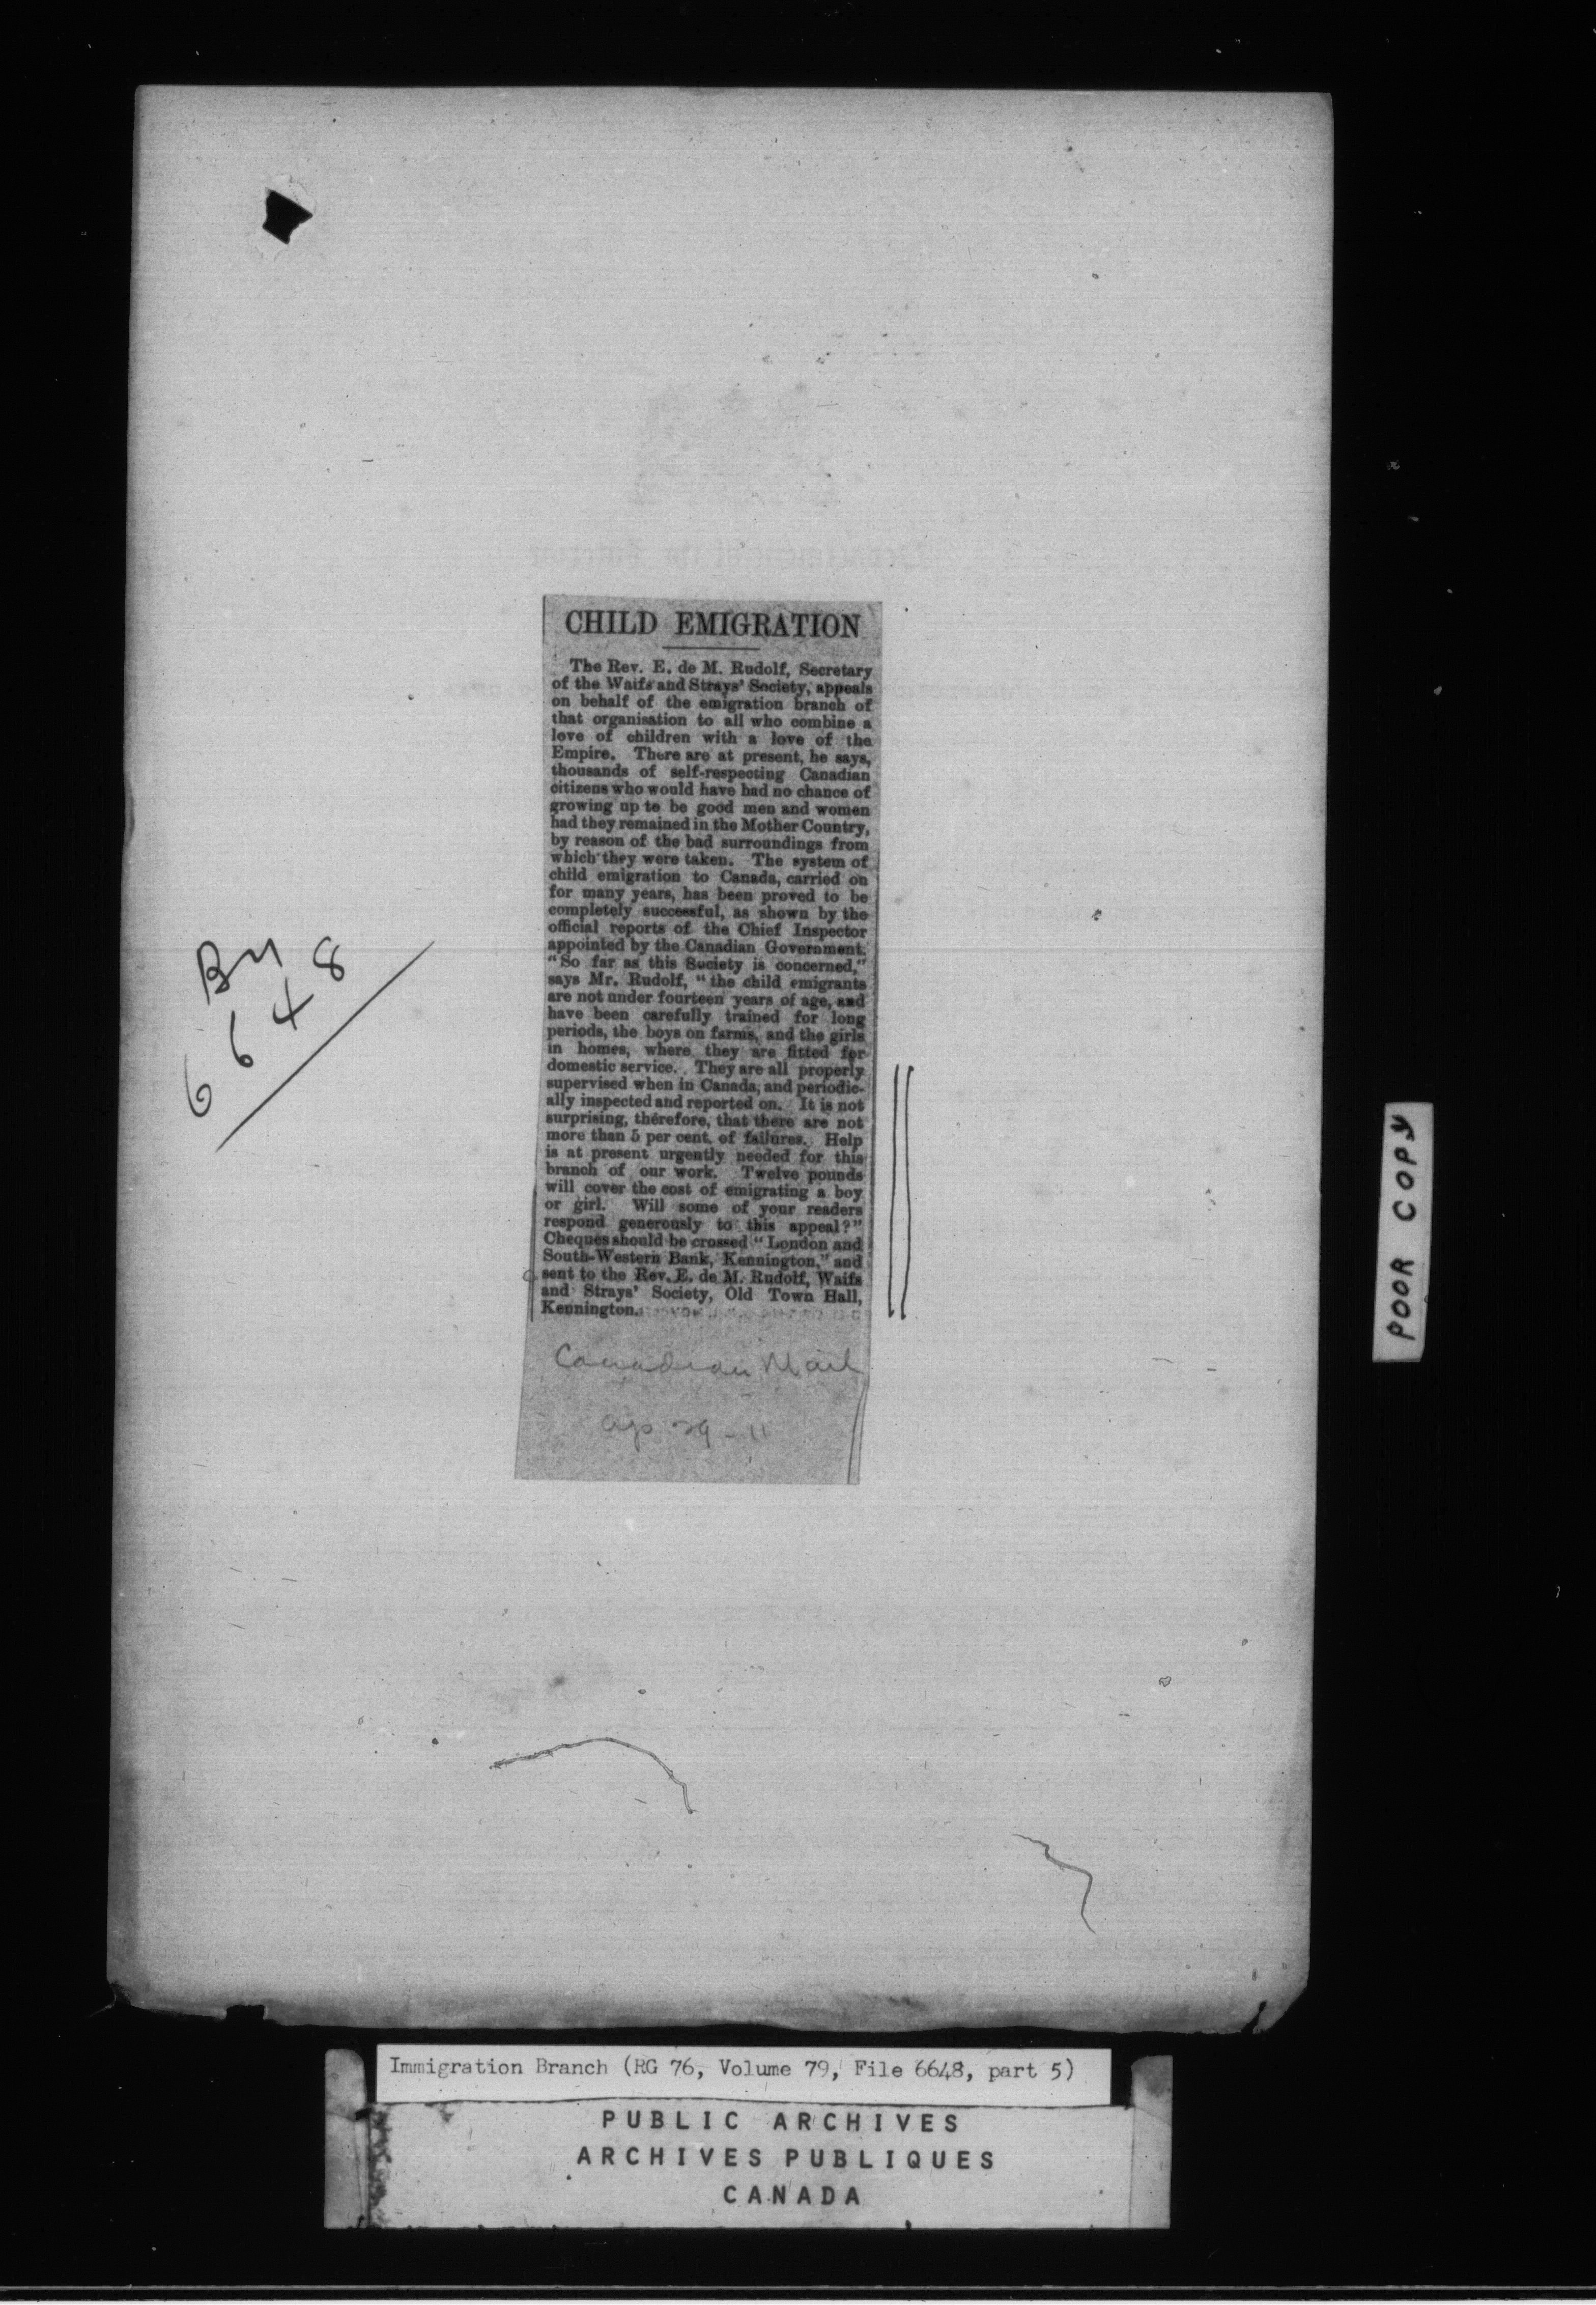 CHILD EMIGRATION
The Rev. E. de M. Rudolf, Secretary
of the Waifs and Strays' Society, appeals
on behalf of the emigration branch of
that organisation to all who combine a
love of children with a love of the
Empire. There are at present, he says,
thousands of self-respecting Canadian
citizens who would have had no chance of
growing up to be good men and women
had they remained in the Mother Country,
by reason of the bad surroundings from
which they were taken. The system of
child emigration to Canada, carried on
for many years, has been proved to be
completely successful, as shown by the
official reports of the Chief Inspector
appointed by the Canadian Government.
"So far as this Society is concerned,"
says Mr. Rudolf, "the child emigrants
are not under fourteen years of age, and
have been carefully trained for long
periods, the boys on farms, and the girls
in homes, where they are fitted for
domestic service. They are all properly
supervised when in Canada, and periodic-
ally inspected and reported on. It is not
surprising, therefore, that there are not
more than 5 per cent. of failures. Help
is at present urgently needed for this
branch of our work. Twelve pounds
will cover the cost of emigrating a boy
or girl. Will some of your readers
respond generously to this appeal?"
Cheques should be crossed "London and
South-Western Bank, Kennington," and
sent to the Rev. E. de M. Rudolf, Waifs
and Strays' Society, Old Town Hall,
Kennington.
Canadian Mail
Ap 29-11
6648
POOR COPY
Immigration Branch (RG 76, Volume 79, File 6648, part 5)
PUBLIC ARCHIVES
ARCHIVES PUBLIQUES
CANADA